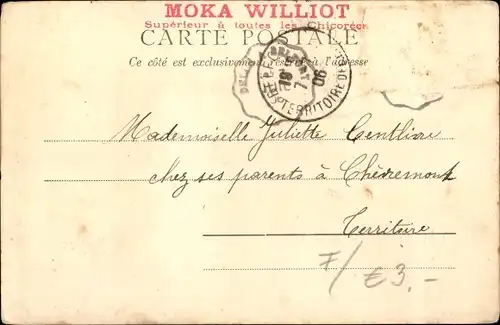 MOKA WILLIOT
Supérieur à toutes les Chicorées
CARTE POSTALE
Ce côté est exclusivement réservé à l'adresse
BELFORT
TERRITOIRE DE
19
7
06
Mademoiselle Juliette Centlivre
chez ses parents à Chèvremont
Territoire
F/ €3.-